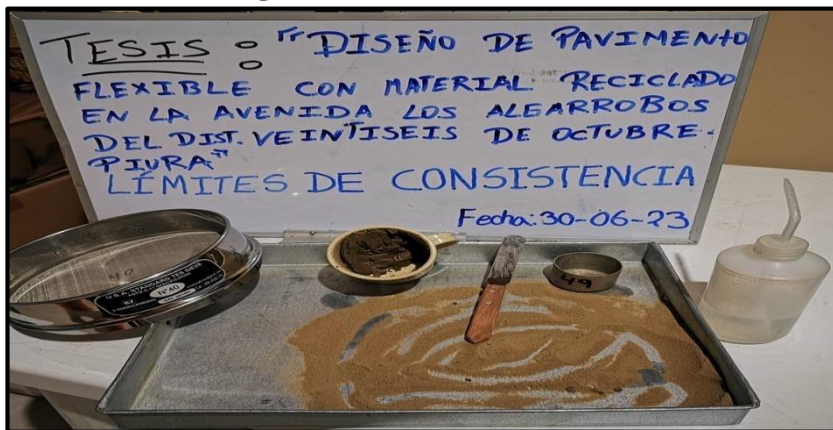 TESIS : "DISEÑO DE PAVIMENTO
FLEXIBLE CON MATERIAL RECICLADO
EN LA AVENIDA LOS ALGARROBOS
DEL DIST. VEINTISEIS DE OCTUBRE.
PIURA"
LÍMITES DE CONSISTENCIA
Fecha: 30-06-23
40
U.S.A. STANDARD TEST SIEVE
Nº 40
49